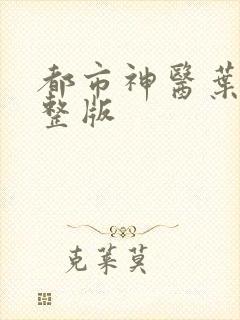 都市神醫葉
整版
克萊莫